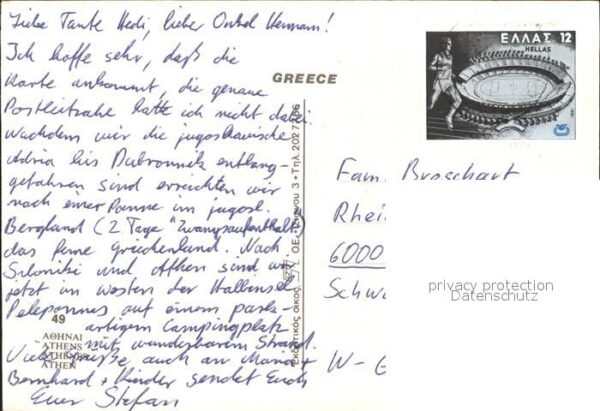 Liebe Tante Hedi, lieber Onkel Hermann!
Ich hoffe sehr, daß die
Karte ankommt, die genaue
Postleitzahl hatte ich nicht dabei.
Nachdem wir die jugoslawische
Adria bis Dubrovnik entlang-
gefahren sind erreichten wir
nach einer Panne im jugosl.
Bergland (2 Tage "Zwangsaufenthalt")
das ferne Griechenland. Nach
Saloniki und Athen sind wir
jetzt im Westen der Halbinsel
Peleponnes auf einem park-
artigem Campingplatz
mit wunderbarem Strand.
Viele Grüße auch an Maria +
Bernhard + Kinder sendet Euch
Euer Stefan
49
ΑΘΗΝΑΙ
ATHENS
ATHEN
GREECE
Εκδοτικός οίκος
3 • Τηλ.
ΕΛΛΑΣ 12
HELLAS
Fam. Broschart
Rhei
6000
Schw
W-
privacy protection
Datenschutz